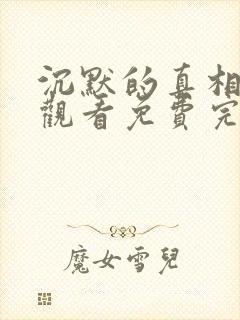 沉默的真相
觀看免費完
魔女雪兒